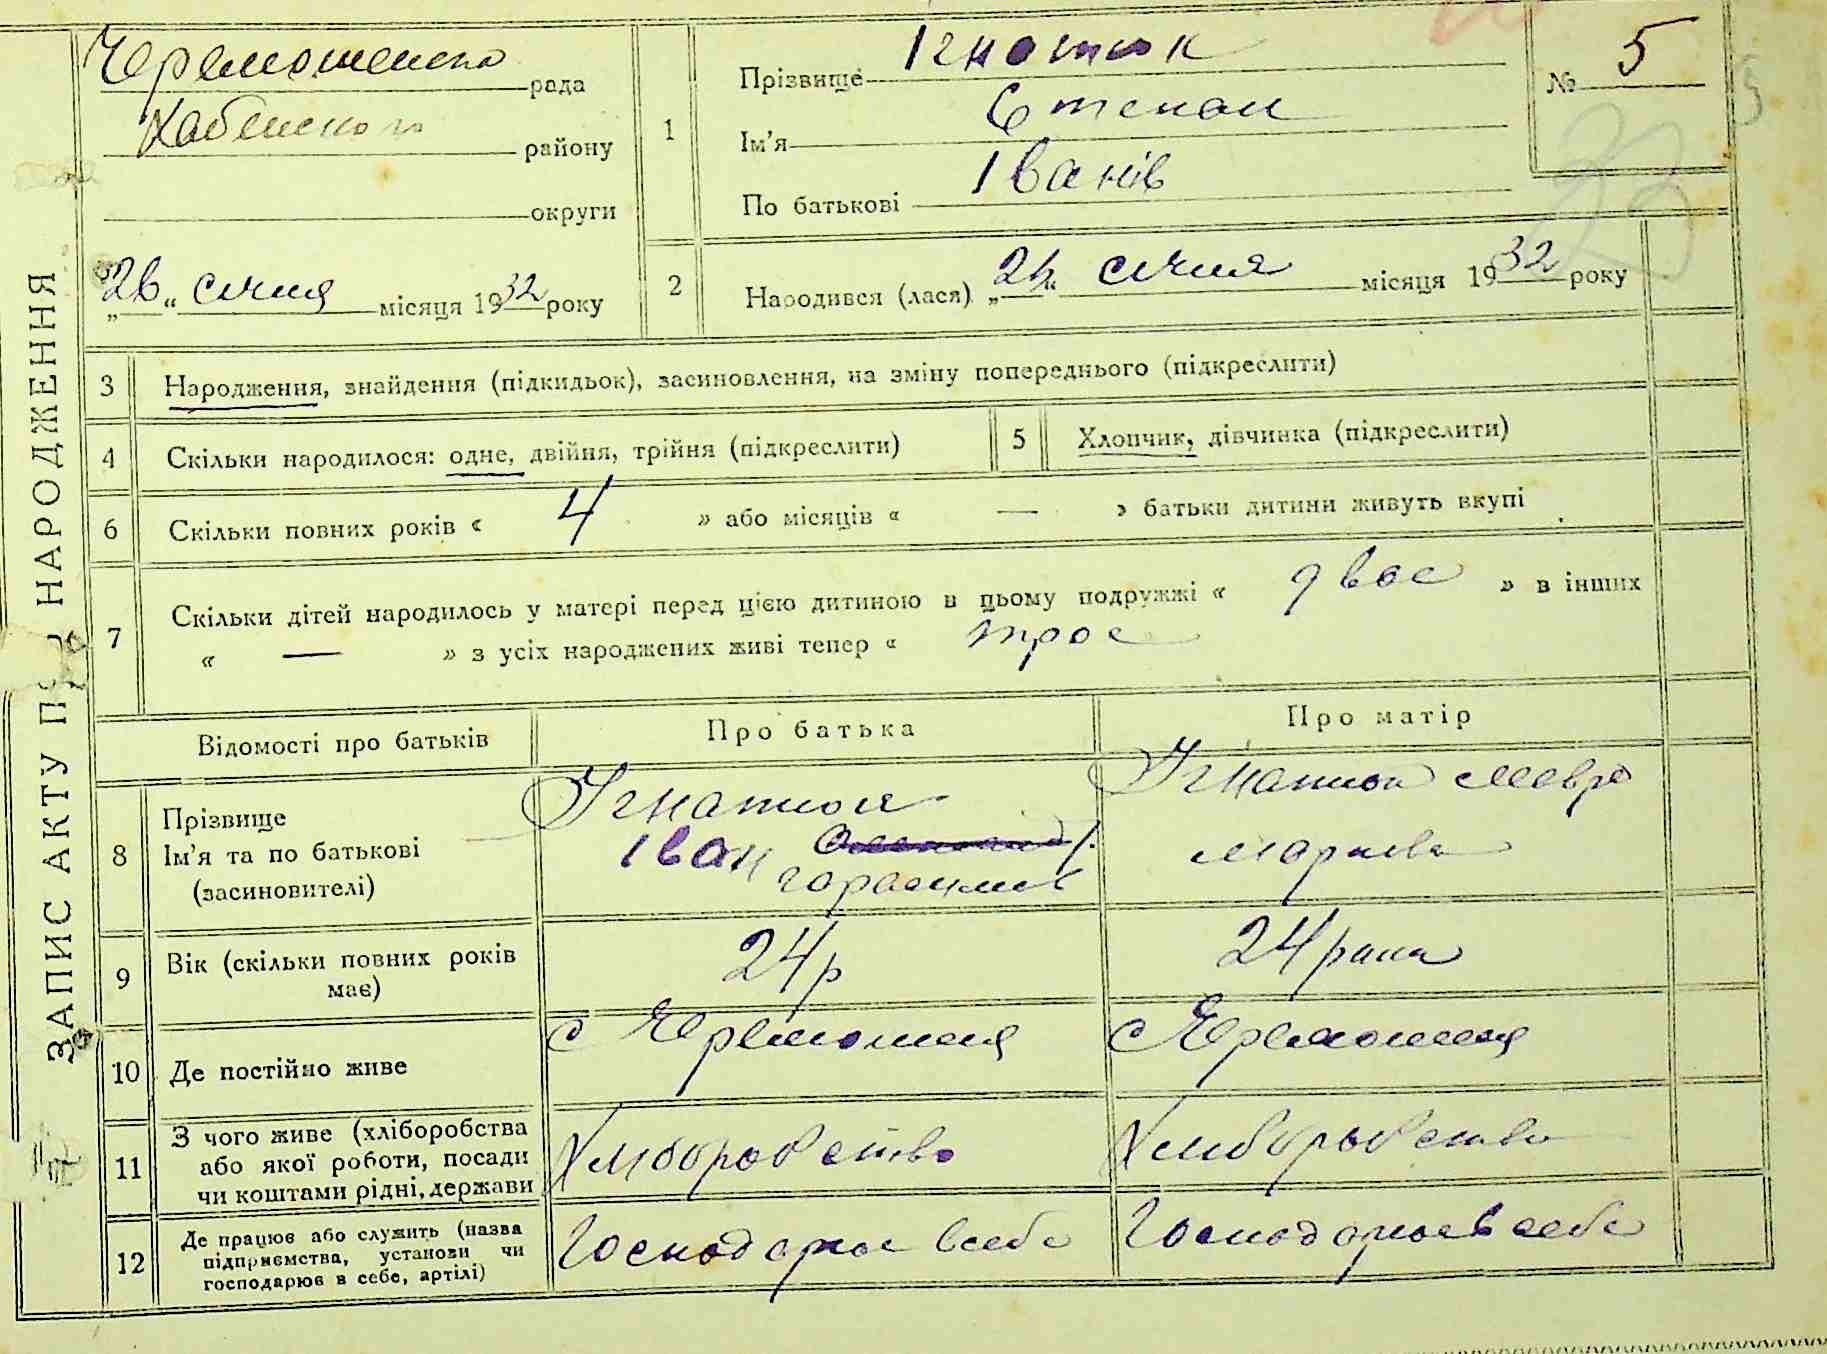 ЗАПИС АКТУ ПРО НАРОДЖЕННЯ
Черемошенська рада
Хабенського району
округи
„26“ січня місяця 1932 року
1
Прізвище Ігнатюк
Ім'я Степан
По батькові Іванів
№ 5
2
Народився (лася) „24“ січня місяця 1932 року
3 Народження, знайдення (підкидьок), засиновлення, на зміну попереднього (підкреслити)
4 Скільки народилося: одне, двійня, трійня (підкреслити)
5 Хлопчик, дівчинка (підкреслити)
6 Скільки повних років « 4 » або місяців « — » батьки дитини живуть вкупі
7 Скільки дітей народилось у матері перед цією дитиною в цьому подружжі « двоє » в інших
« — » з усіх народжених живі тепер « троє
Відомості про батьків
Про батька
Про матір
8 Прізвище
Ім'я та по батькові
(засиновителі)
Ігнатюк
Іван
Гарасимів
Ігнатюк Мавра
Маркова
9 Вік (скільки повних років
має)
24 р
24 роки
10 Де постійно живе
с Черемошня
с Черемошня
11 З чого живе (хліборобства
або якої роботи, посади
чи коштами рідні, держави
Хліборобство
Хліборобство
12 Де працює або служить (назва
підприємства, установи чи
господарює в себе, артілі)
Господарює всебе
Господарює всебе